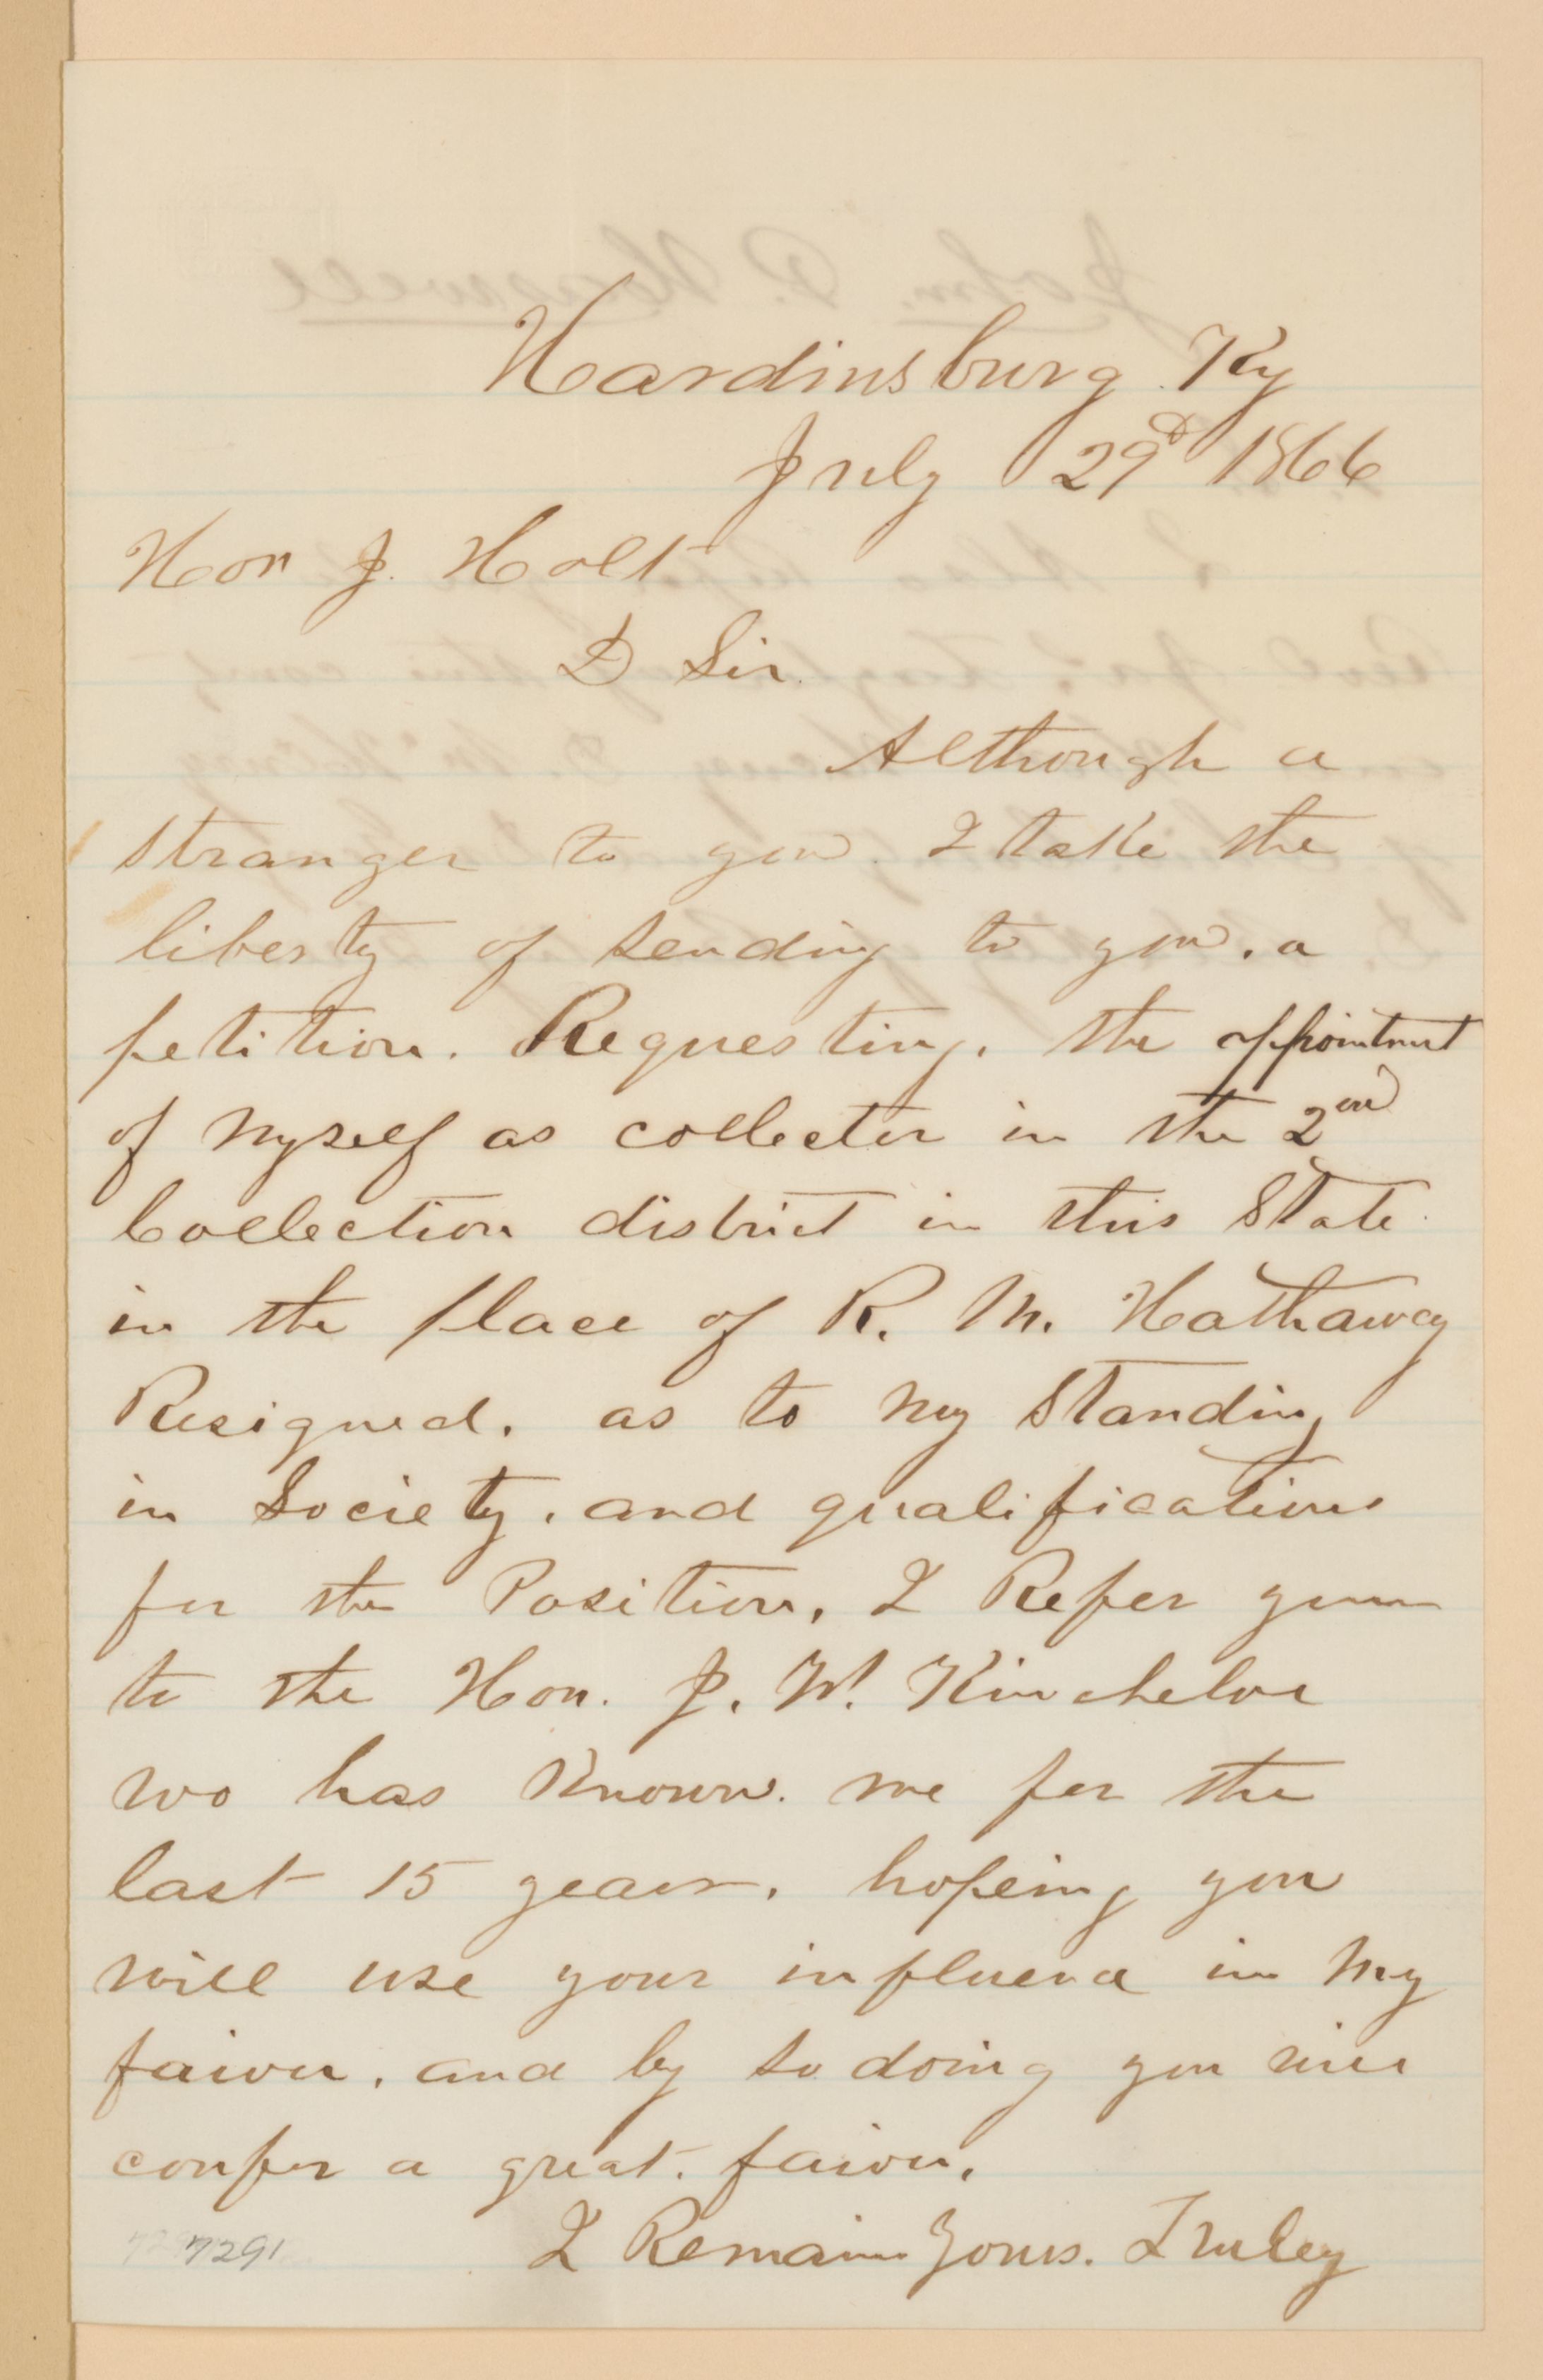 Hardinsburg Ky
July 29d 1866
Hon J. Holt
D Sir.
Although a
stranger to you. I take the
liberty of sending to you. a
petition. Requesting. the appointmet
of myself as collecter in the 2nd
Collection district in this State
in the place of R. M. Hathaway
Resigned. as to my Standing
in Society. and qualifications
for the Position. I Refer you
to the Hon. J. W. Kincheloe
wo has Known. me for the
last 15 years. hopeing you
will use your influence in my
faivor. and by so doing you will
confer a great. faivor.
I Remain Yours. Truley
7291